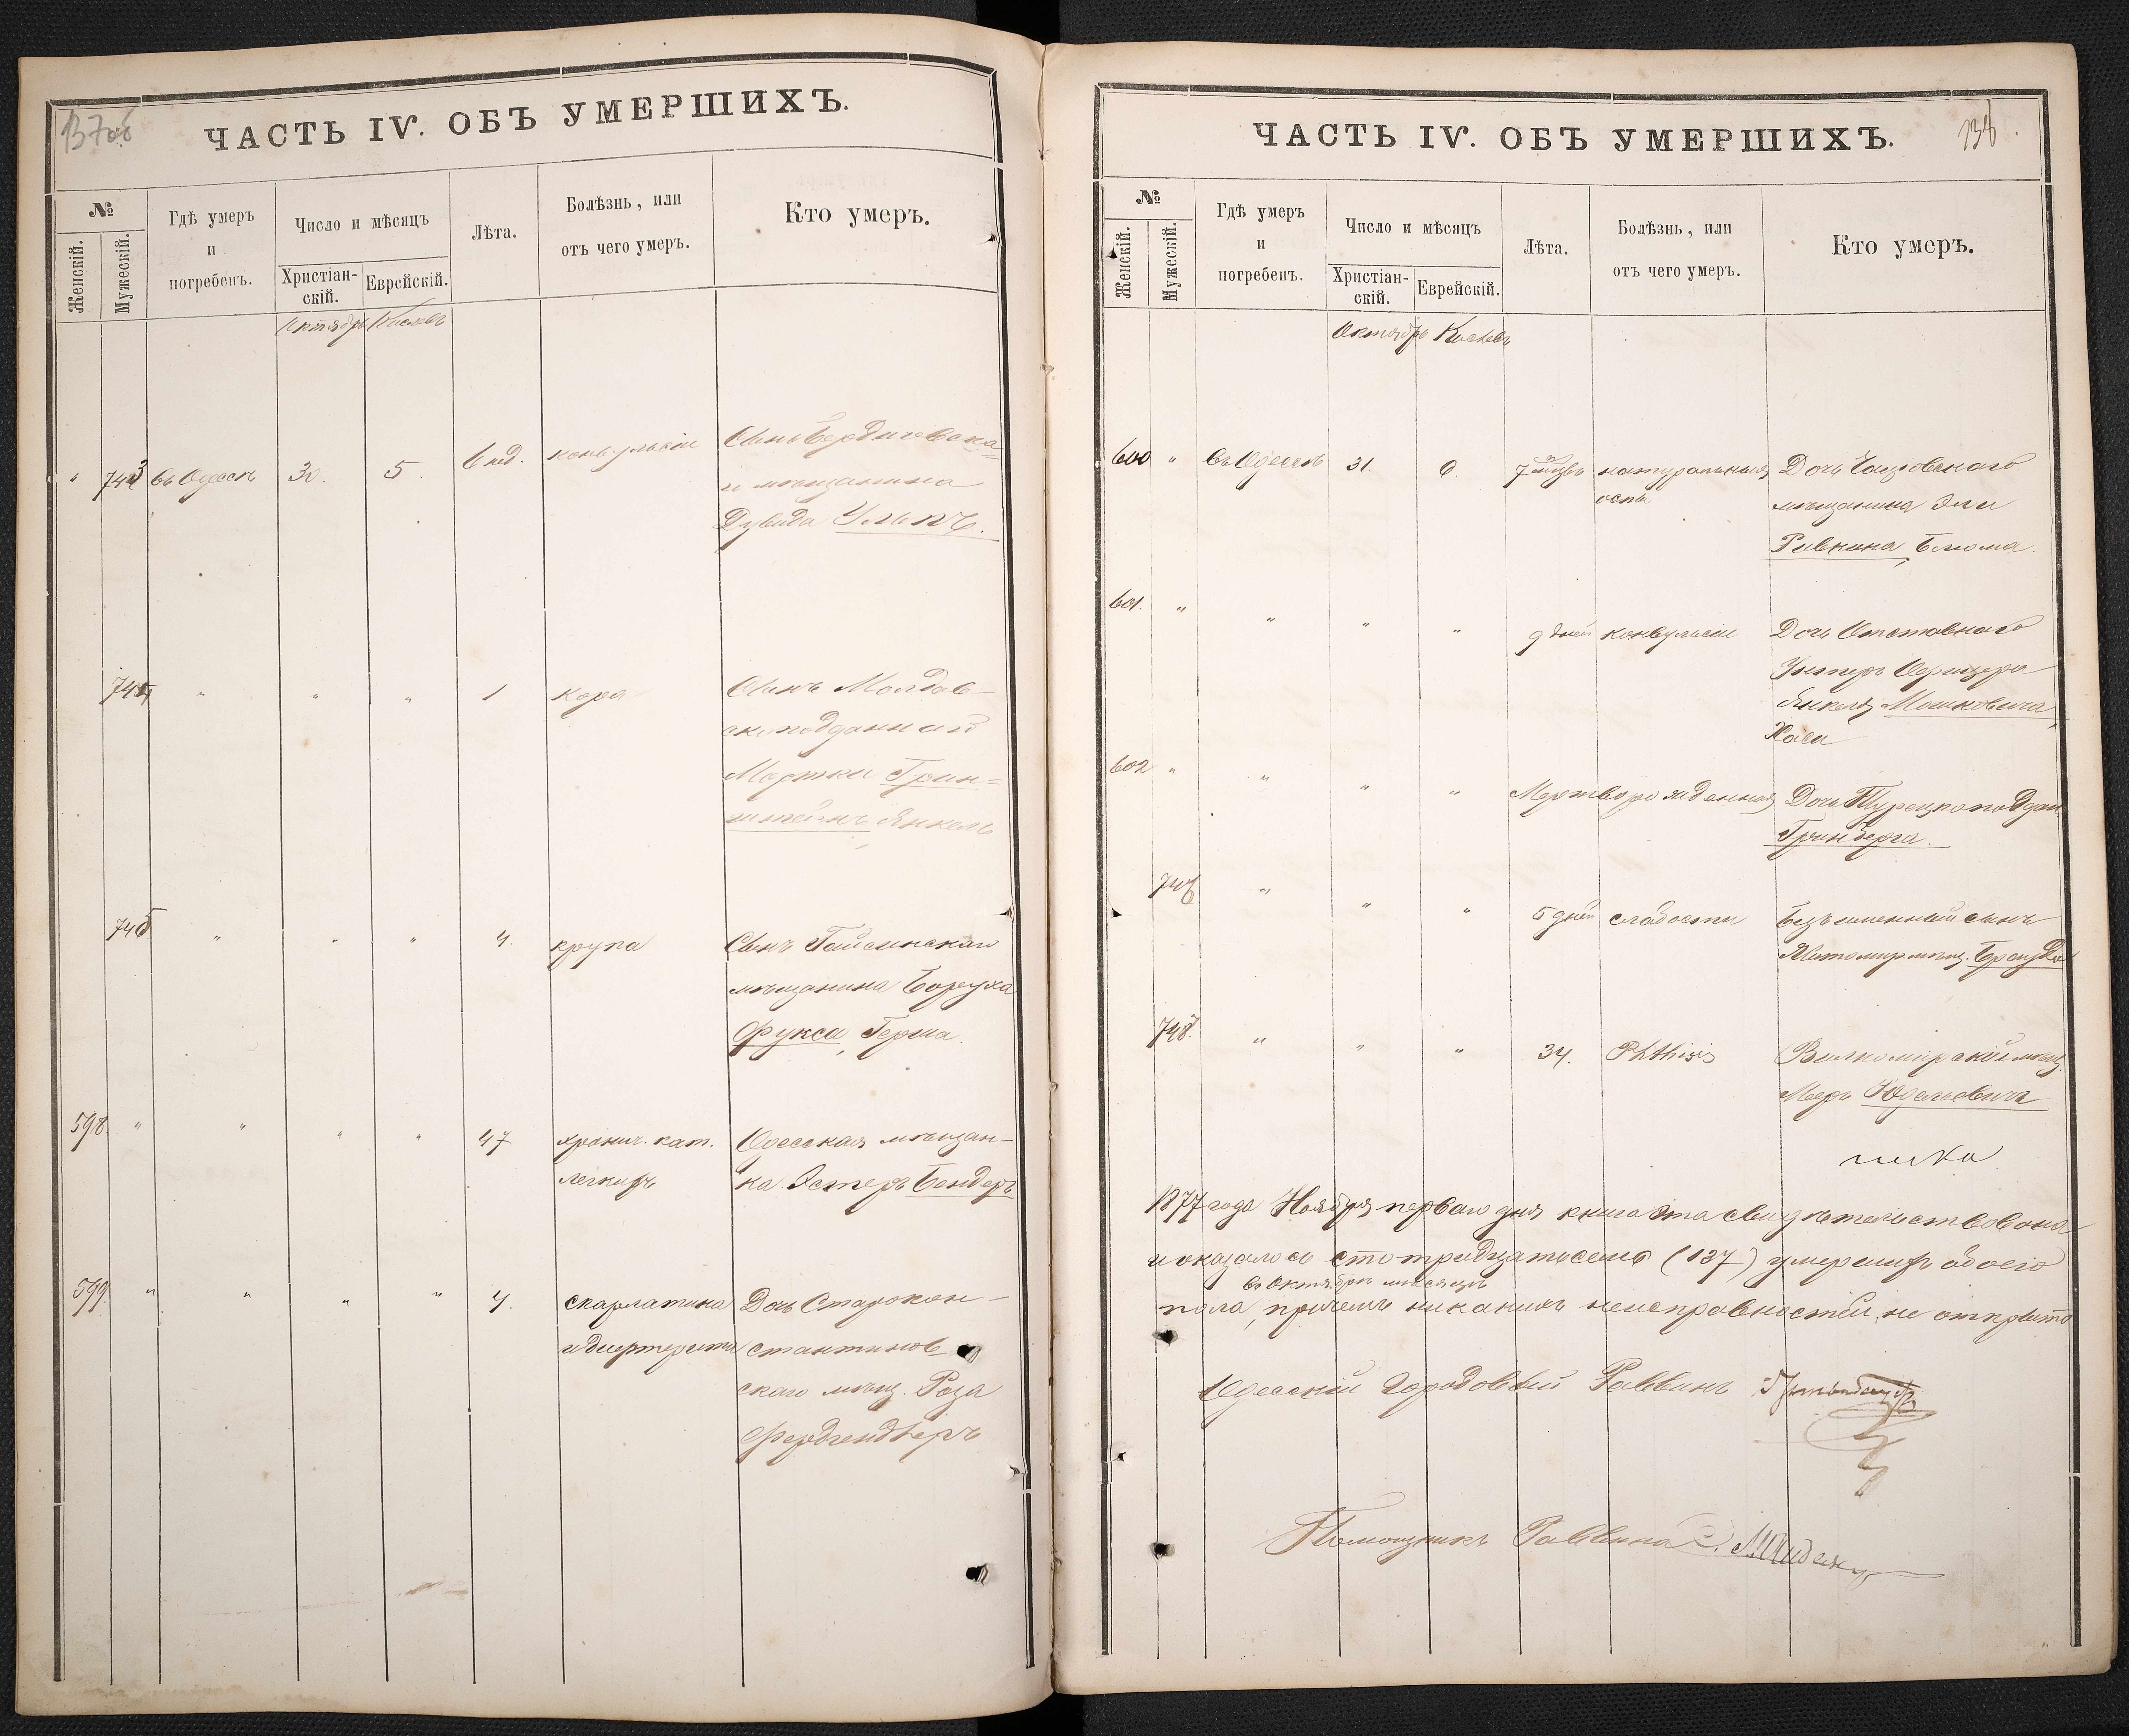 137об
ЧАСТЬ IV. ОБЪ УМЕРШИХЪ.
№
Женскій.
Мужескій.
Гдѣ умеръ
и
погребенъ.
Число и мѣсяцъ
Христіан-
скій.
Еврейскій.
Лѣта.
Болѣзнь, или
отъ чего умеръ.
Кто умеръ.
Октябрь Кислевъ
" 743 въ Одессѣ 30. 5. 6 нед. конвульсіи Сынъ Бердичевска-
мѣщанина
Дувида
" " " 1 кора Сынъ Молдав-
скоподданной
Мортки Грин-
штейнъ Янкель
745 " " " 4. крупа Сынъ Гайсинскаго
мѣщанина Боруха
Фукса, Герша.
598 " " " " 47 хронич. кат.
легкихъ
Одесская мѣщан-
ка Эстеръ Бендеръ
599 " " " " 4. скарлатина
и дифтерита
Дочь Старокон-
стантинов-
скаго мѣщ. Роза
138.
ЧАСТЬ IV. ОБЪ УМЕРШИХЪ.
№
Женскій.
Мужескій.
Гдѣ умеръ
и
погребенъ.
Число и мѣсяцъ
Христіан-
скій.
Еврейскій.
Лѣта.
Болѣзнь, или
отъ чего умеръ.
Кто умеръ.
Октябрь Кислевъ
600 " въ Одессѣ 31. 6. 7 мѣсяц. натуральная
оспа
Дочь
мѣщанина Эли
Ривкина, Блюма.
601. " " " " 9 дней конвульсіи Дочь Отставнаго
Унтеръ Офицера
Янкеля Мошковича,
Хася
602 " " " " Мертворожденная Дочь Турецкоподдан
Гринберга.
" " " 5 дней слабости Безъименный сынъ
Житомир мѣщ.
748. " " " 34. Phthisis Вилкомирскій мѣщ.
Меръ Юделевичъ
1877 года Ноября перваго дня книга эта свидѣтельствована
и оказалось сто тридцать семь (137) умершихъ обоего
въ Октябрѣ мѣсяцѣ
пола, причемъ никакихъ неисправностей не открыто
Одесскій Городовый Раввинъ
Помощникъ Раввина